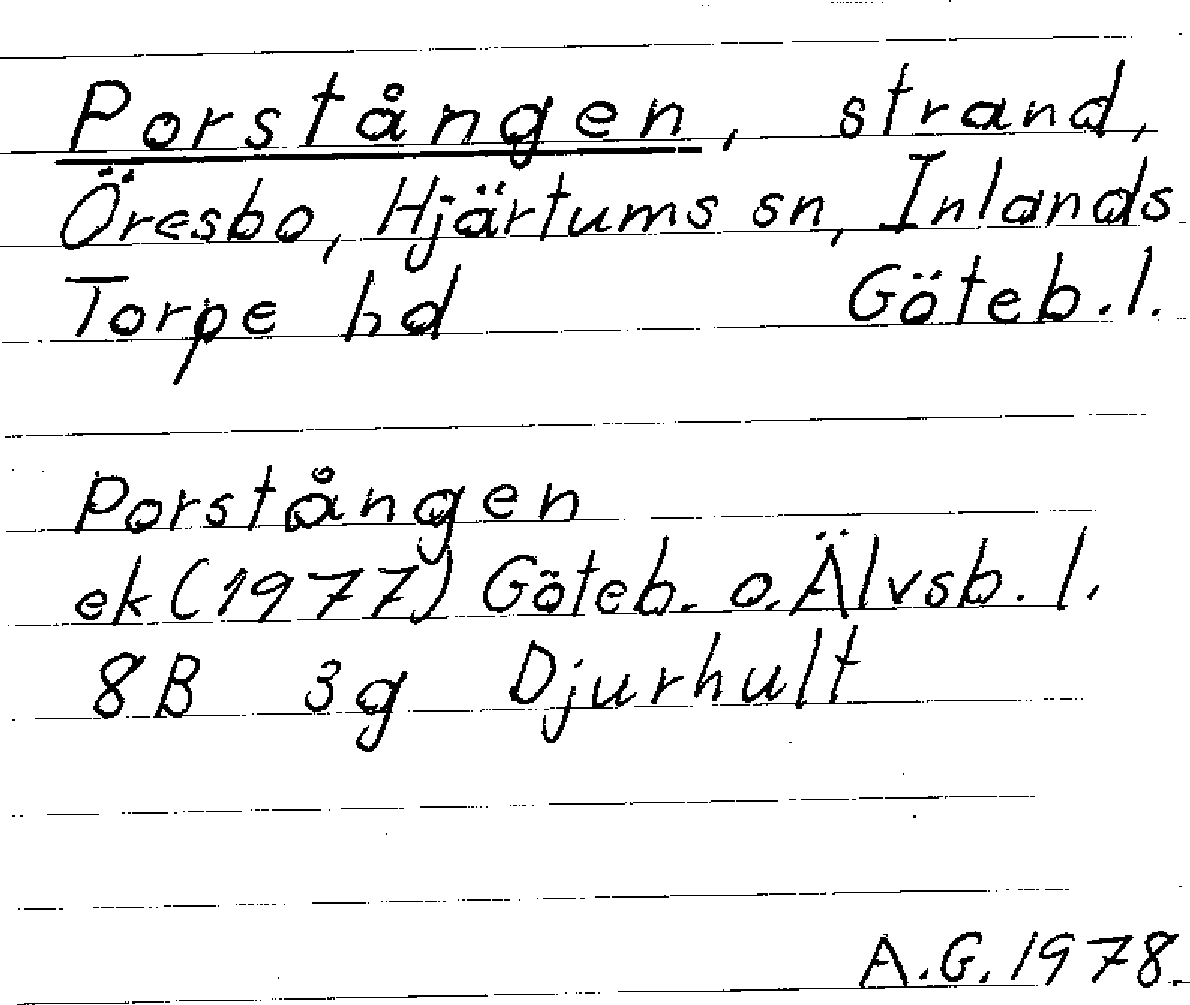 Porstången, strand,
Öresbo, Hjärtums sn, Inlands
Torpe hd Göteb.l.
Porstången
ek (1977) Göteb. o. Älvsb. l.
8B 3g Djurhult
A.G. 1978.